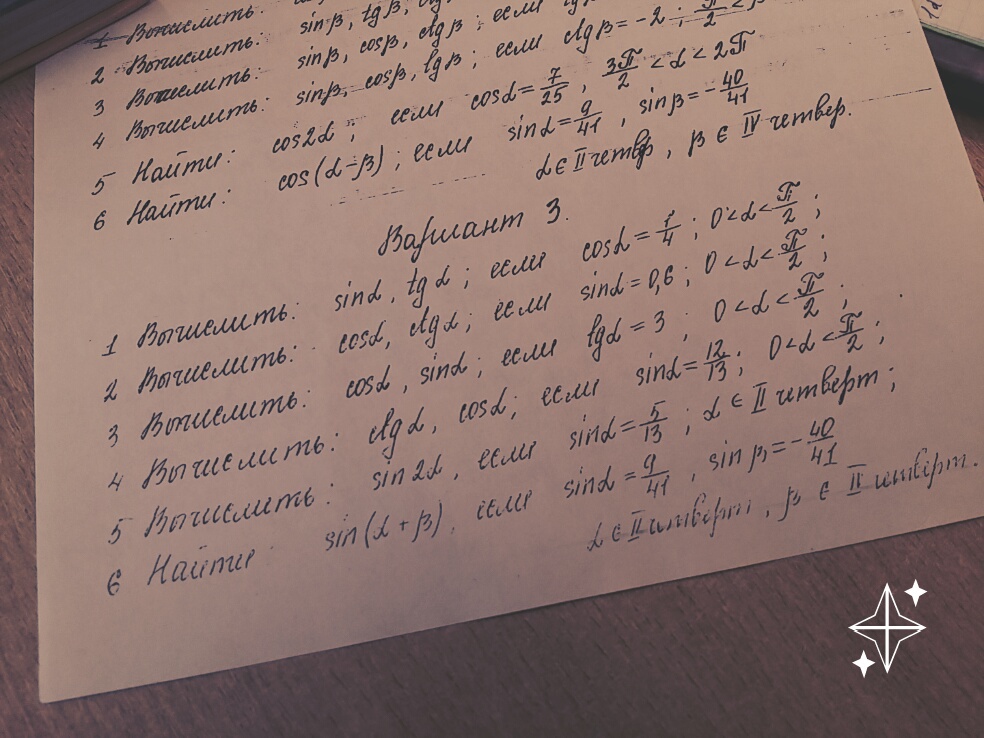 1 Вычислить:
2 Вычислить: sinβ, tgβ,
3 Вычислить: sinβ, cosβ, ctgβ; если
4 Вычислить: sinβ, cosβ, tgβ; если ctgβ = -2; π/2 < β
5 Найти: cos2α; если cosα = 7/25, 3π/2 < α < 2π
6 Найти: cos(α-β); если sinα = 9/41, sinβ = -40/41
α ∈ II четвер, β ∈ IV четвер.
Вариант 3.
1 Вычислить: sinα, tgα; если cosα = 1/4; 0 < α < π/2;
2 Вычислить: cosα, ctgα; если sinα = 0,6; 0 < α < π/2;
3 Вычислить: cosα, sinα; если tgα = 3; 0 < α < π/2;
4 Вычислить: ctgα, cosα; если sinα = 12/13; 0 < α < π/2;
5 Вычислить: sin2α, если sinα = 5/13; α ∈ II четверт;
6 Найти sin(α+β), если sinα = 9/41, sinβ = -40/41
α ∈ II четверт, β ∈ четверт.